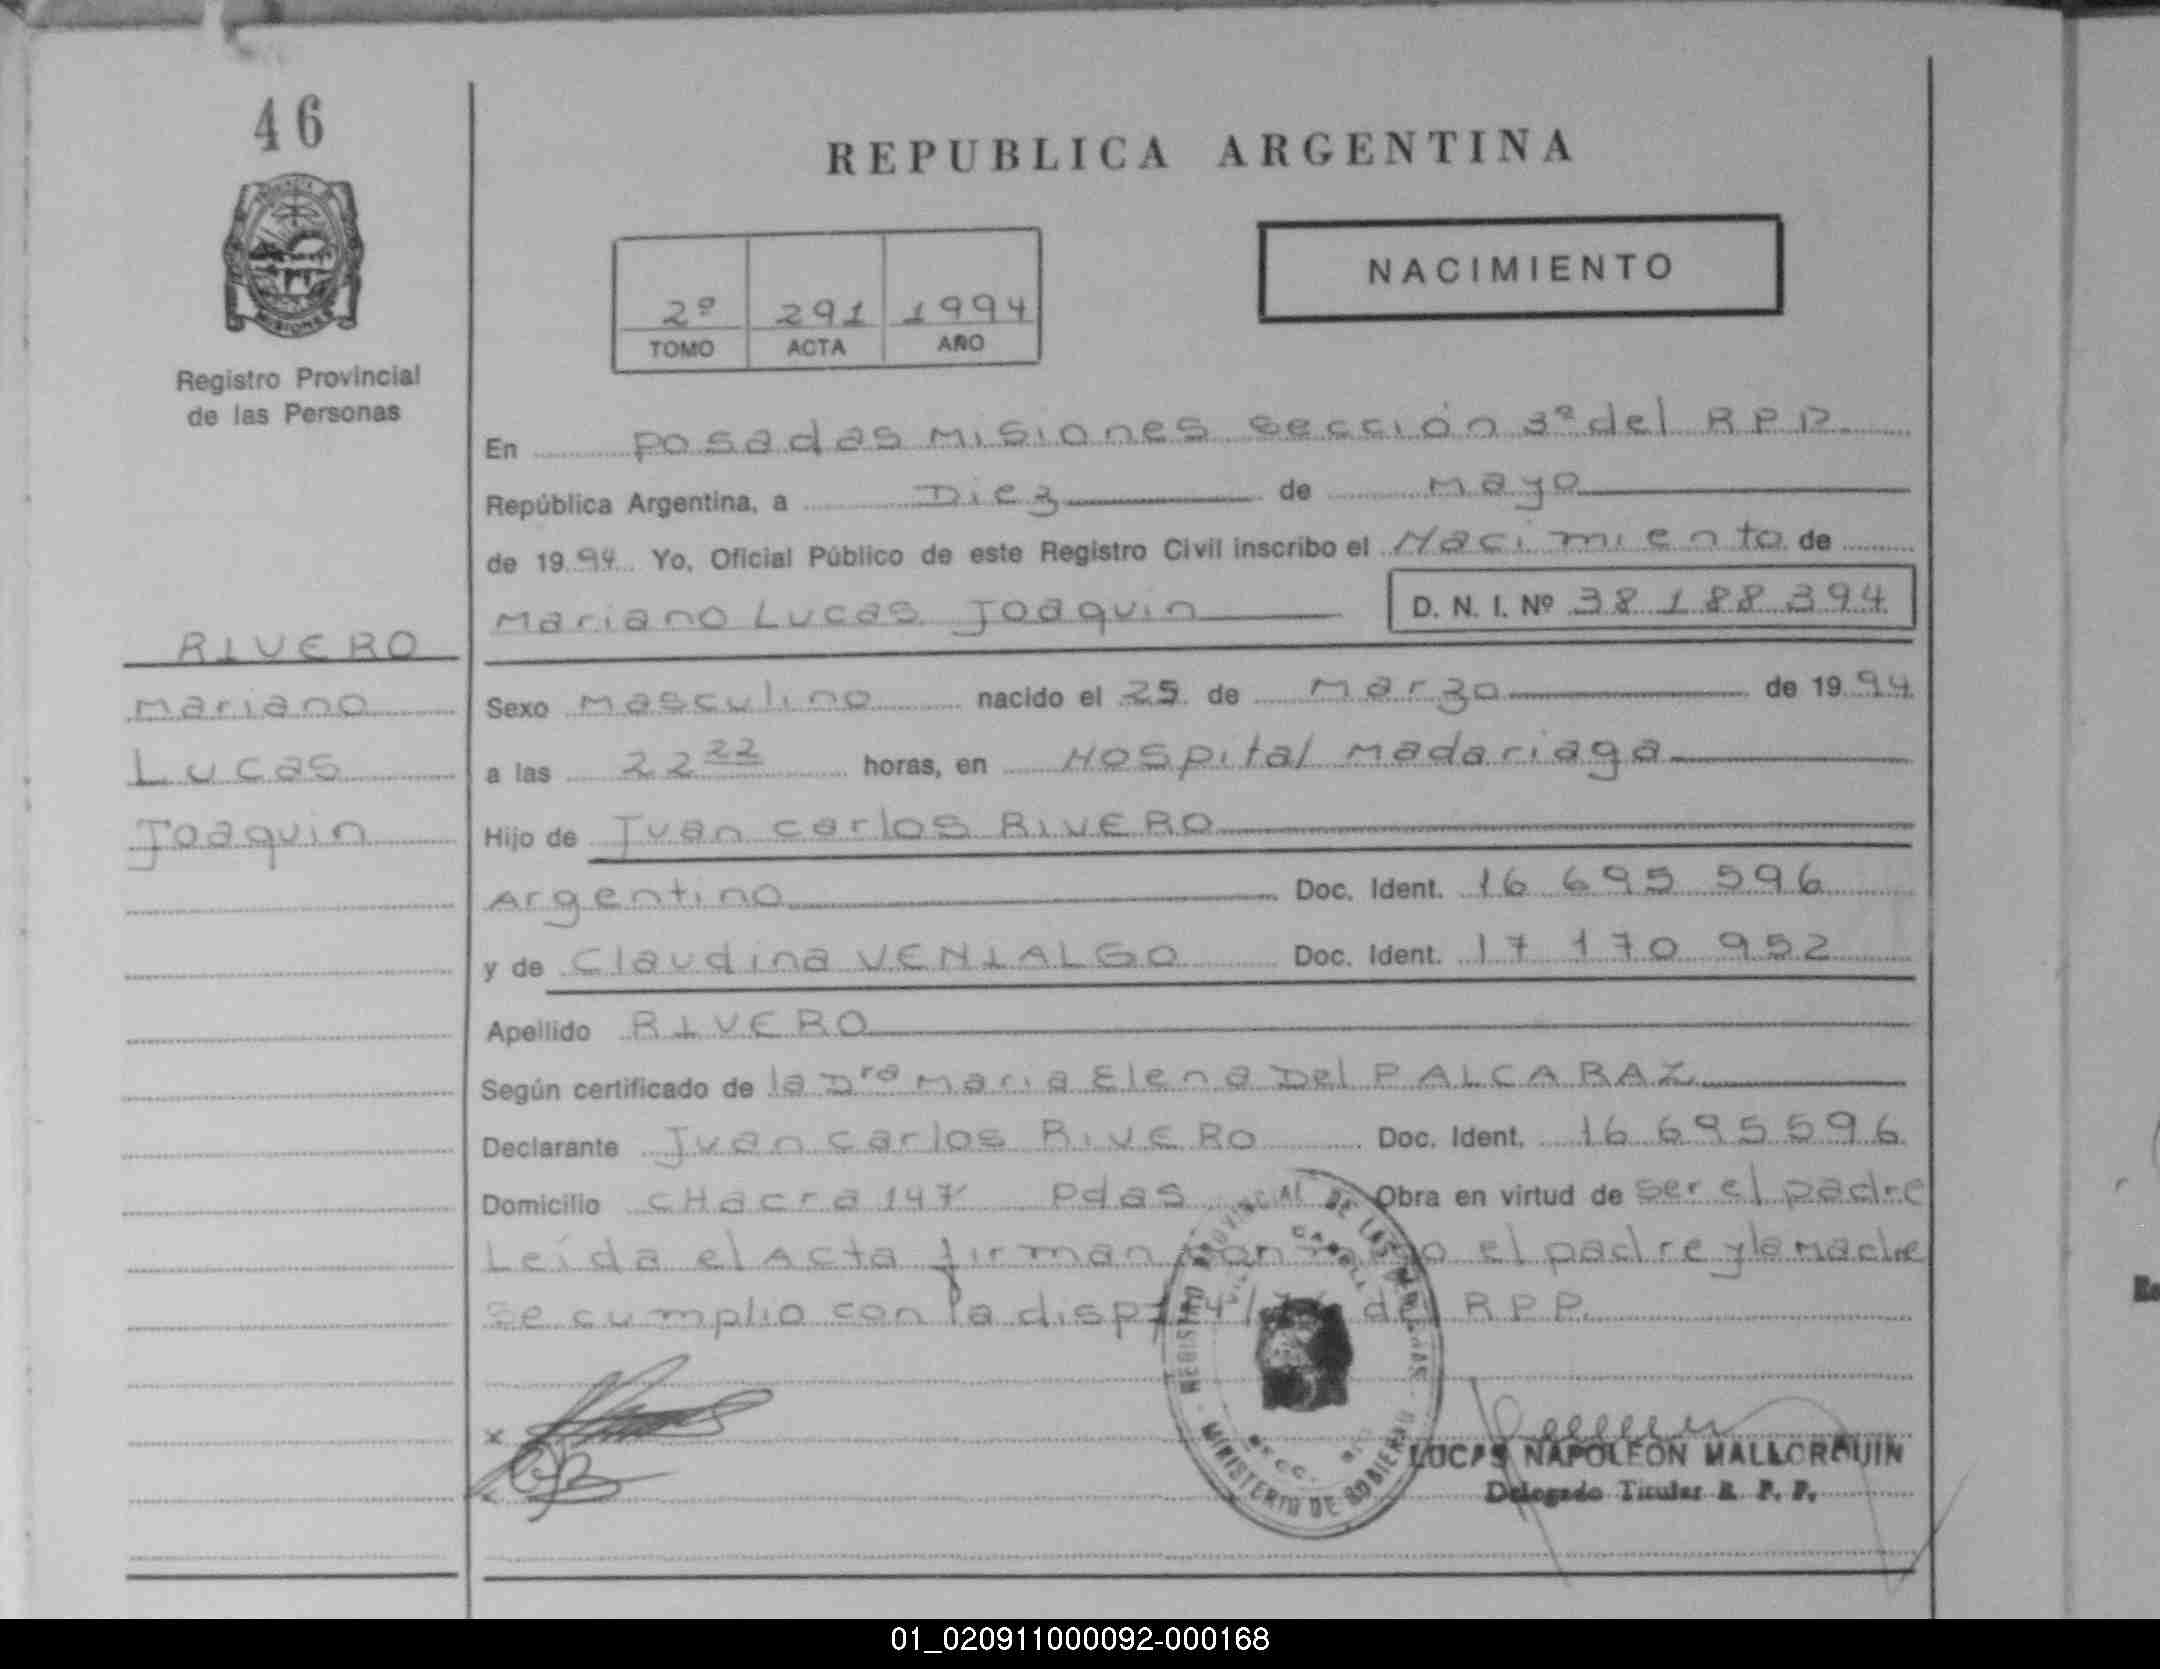 46
REPUBLICA ARGENTINA
NACIMIENTO
2º 291 1994
TOMO ACTA AÑO
MISIONES
Registro Provincial
de las Personas
En Posadas Misiones Sección 3ª del R P P.
República Argentina, a Diez de Mayo
de 19 94 Yo, Oficial Público de este Registro Civil inscribo el Nacimiento de
Mariano Lucas Joaquin D. N. I. Nº 38 188 394
RIVERO
Mariano
Lucas
Joaquin
Sexo Masculino nacido el 25 de Marzo de 19 94
a las 22 22 horas, en Hospital Madariaga
Hijo de Juan Carlos RIVERO
Argentino Doc. Ident. 16 695 596
y de Claudina VENIALGO Doc. Ident. 17 170 952
Apellido RIVERO
Según certificado de la Dra Maria Elena Del P ALCARAZ
Declarante Juan Carlos RIVERO Doc. Ident. 16 695 596
Domicilio CHacra 147 Pdas Obra en virtud de ser el padre
Leída el Acta firman el padre y la Madre
se cumplio con la disp R P P.
REGISTRO PROVINCIAL DE LAS PERSONAS
MINISTERIO DE GOBIERNO
LUCAS NAPOLEON MALLORQUIN
Delegado Titular R. P. P.
01_020911000092-000168